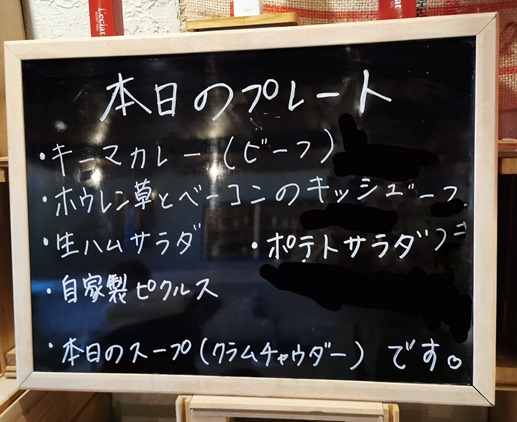 本日のプレート
・キーマカレー(ビーフ)
・ホウレン草とベーコンのキッシュ
・生ハムサラダ ・ポテトサラダ
・自家製ピクルス
・本日のスープ(クラムチャウダー)です。